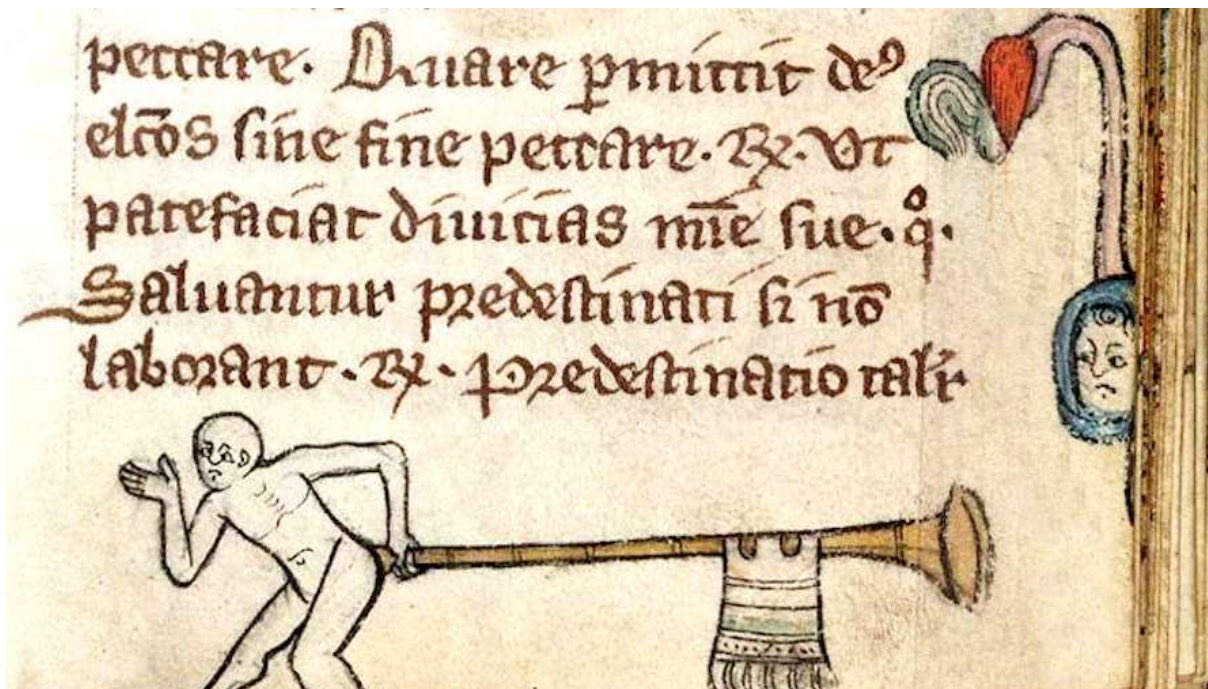 peccare. Quare ꝑmittit deꝰ
elc̄os sine fine peccare. ℞. Vt
patefaciat divicias mīe sue. qͦ.
Saluantur predestinati si nō
laborant. ℞. Predestinatio talr̄